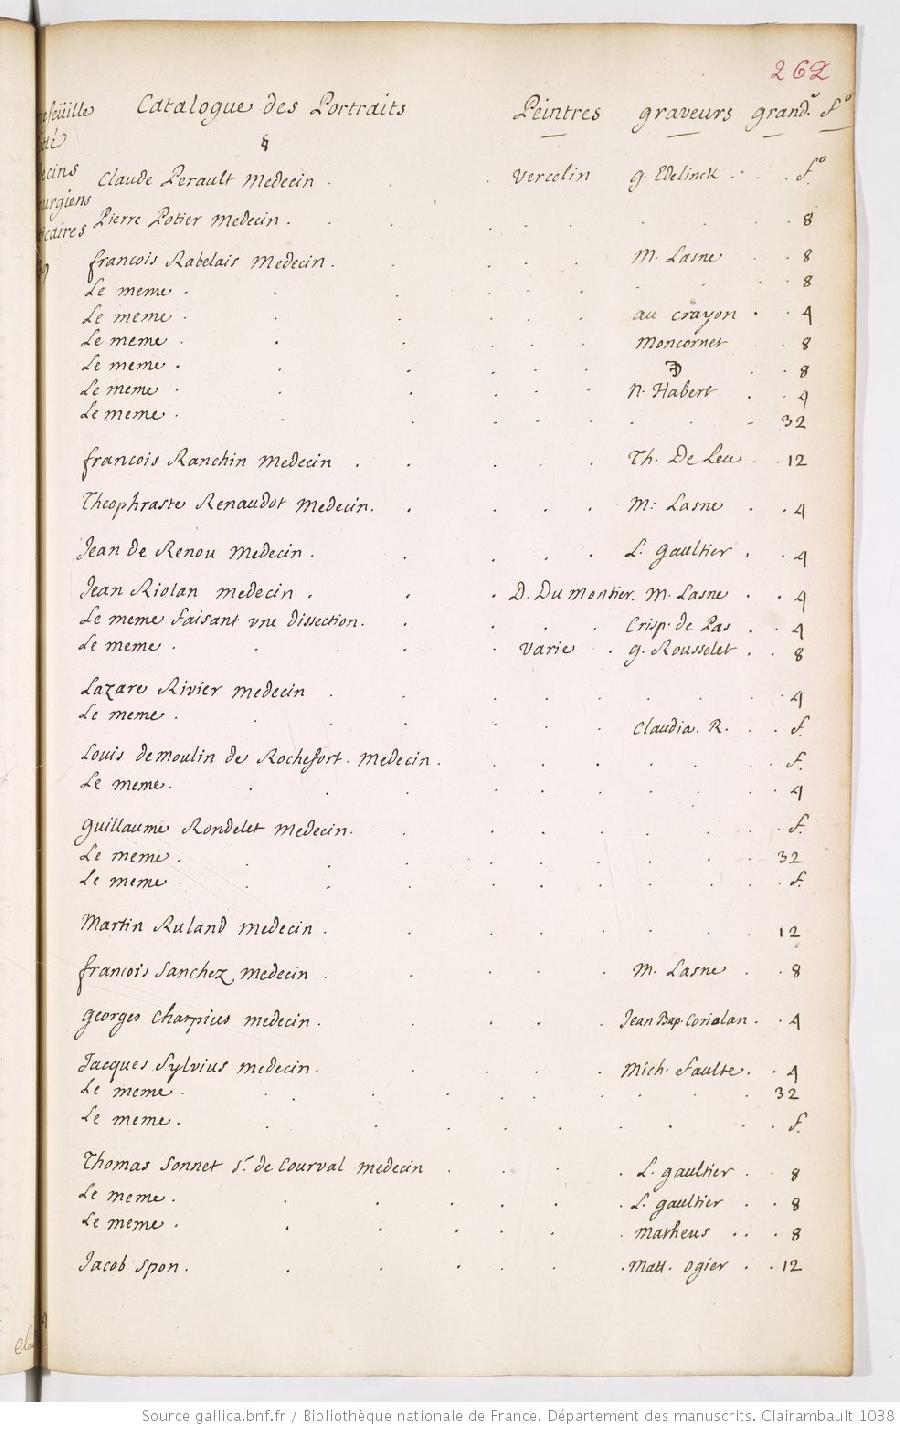 262
efeüille Catalogue des Portraits Peintres graveurs grand.r f.o
té
8
ecins Claude Perault Medecin . . Vercelin g. Edelinck . . . f.o
urgiens
Pierre Potier Medecin . . . . . . . . 8
icaires
francois Rabelais Medecin . . . . . M. Lasne . . 8
Le meme . . . . . . . . . 8
Le meme . . . . . . au crayon . . 4
Le meme . . . . . . Moncornet . 8
Le meme . . . . . . 8
Le meme . . . . . . N. Habert . . 4
Le meme . . . . . . . . . 32
francois Ranchin Medecin . . . . . Th. De Leu . . 12
Theophraste Renaudot Medecin. . . . . M. Lasne . . 4
Jean de Renou Medecin . . . . . L. gaultier . . 4
Jean Riolan medecin . . . D. Du Montier. M. Lasne . . 4
Le meme faisant vne dissection. . . . . Crisp. de Pas . . 4
Le meme . . . . Varie . g. Rousselet . . 8
Lazare Rivier medecin . . . . . . . . 4
Le meme . . . . . . Claudia. R. . . f.
Louis demoulin de Rochefort. Medecin . . . . . . . f.
Le meme. . . . . . . . . . 4
guillaume Rondelet Medecin. . . . . . . . f.
Le meme . . . . . . . . . . 32
Le meme . . . . . . . . . . f.
Martin Ruland medecin . . . . . . . . 12
francois Sanchez medecin . . . . . M. Lasne . . 8
georges Charpius medecin . . . . . Jean Bap. Coriolan . . 4
Jacques Sylvius medecin . . . . . Mich. Faulte . . 4
Le meme . . . . . . . . . . 32
Le meme . . . . . . . . . . f.
Thomas Sonnet S.r de Courval medecin . . . . L. gaultier . . 8
Le meme . . . . . . L. gaultier . . 8
Le meme . . . . . . Matheus . . . 8
Jacob Spon . . . . . . Matt. Ogier . . 12
Source gallica.bnf.fr / Bibliothèque nationale de France. Département des manuscrits. Clairambault 1038